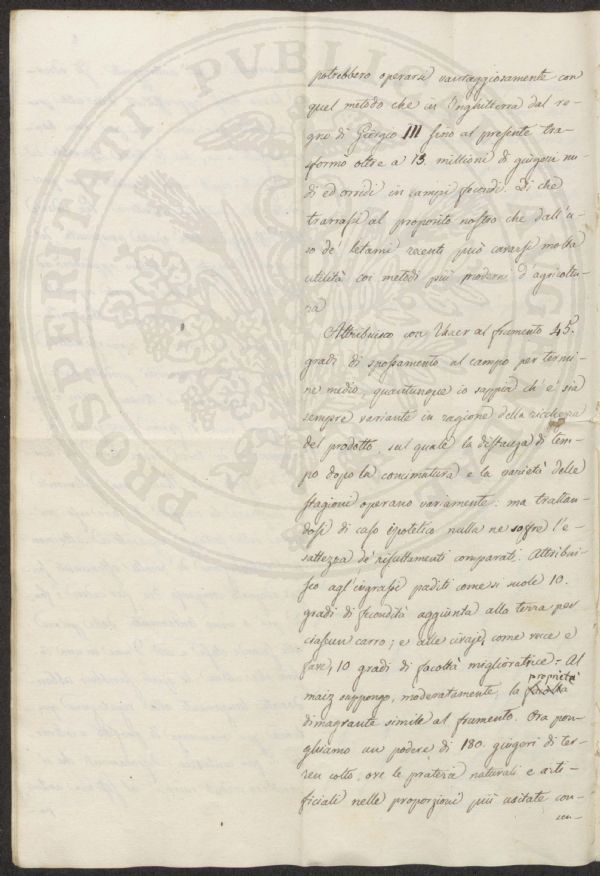 potrebbero operarsi vantaggiosamente con
quel metodo che in Inghilterra dal re-
gno di Giorgio III fino al presente tra-
sformò oltre a 13. millioni di giugeri nu-
di ed orridi in campi fecondi. Di che
trarrassi al proposito nostro che dall'u-
so de' letami recenti può cavarsi molta
utilità coi metodi più moderni d'agricoltu-
ra
Attribuisco con Thaer al frumento 45.
gradi di spossamento al campo per termi-
ne medio, quantunque io sappia ch'è sia
sempre variante in ragione della ricchezza
del prodotto, sul quale la distanza di tem-
po dopo la concimatura e la varietà delle
stagioni operano variamente: ma trattan-
dosi di caso ipotetico nulla ne soffre l'e-
sattezza de' risultamenti comparati. Attribui-
sco agl'ingrassi paditi come si suole 10.
gradi di fecondità aggiunta alla terra per
ciascun carro; e alle civaje, come vece e
fave, 10 gradi di facoltà miglioratrice. Al
maiz suppongo, moderatamente, la facoltà proprietà
dimagrante simile al frumento. Ora pon-
ghiamo un podere di 180. giugeri di ter-
ren colto, ove le prateria naturali e arti-
ficiali nelle proporzioni più usitate con-
PROSPERITATI PVBLICAE